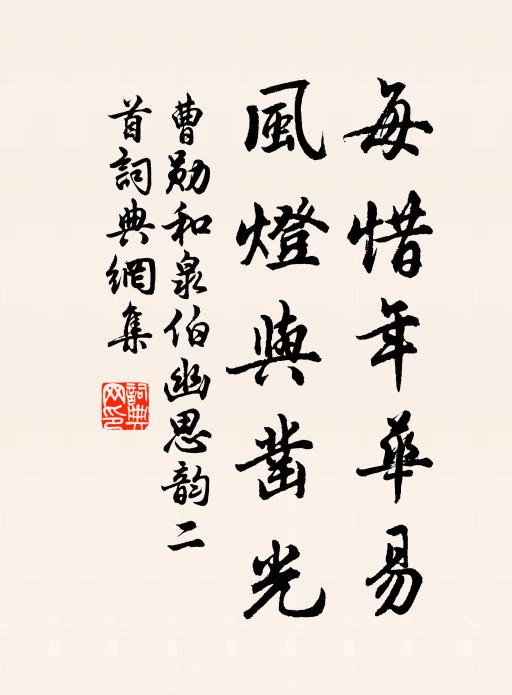 每惜年華易
風燈與鑿光
曹勛和泉伯幽思韵二
首詞典網集
詞典
网印